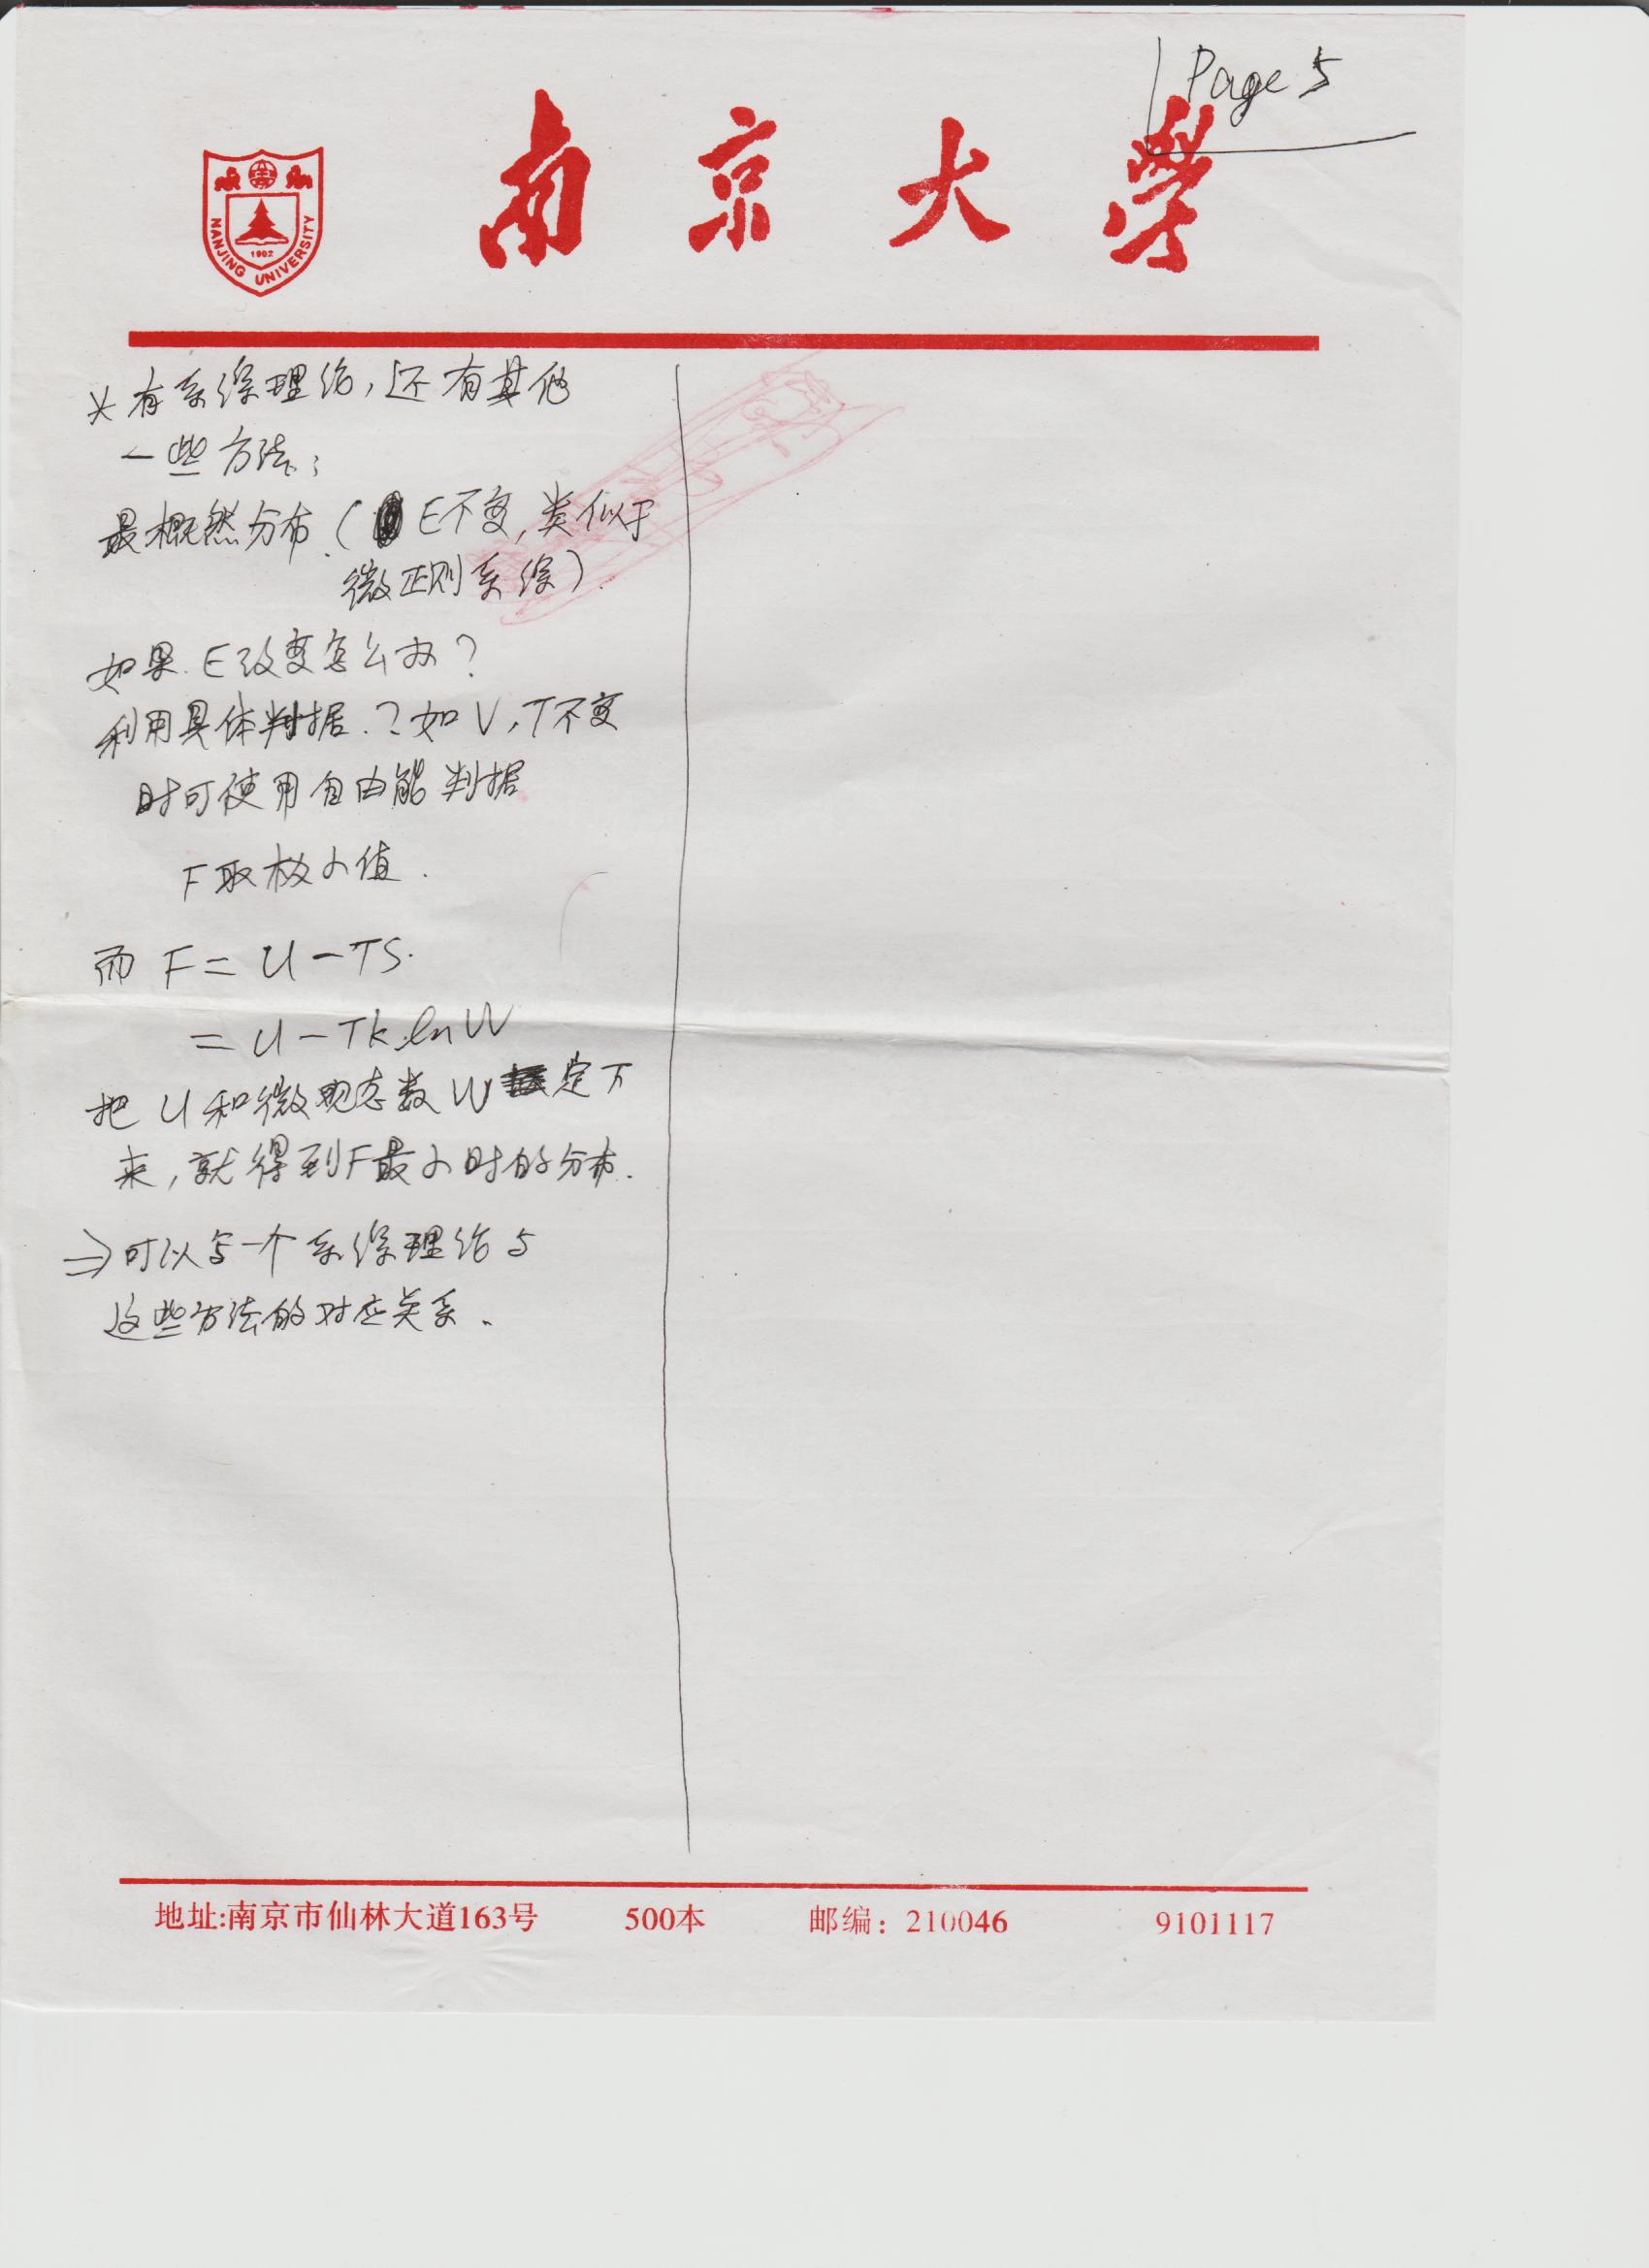 Page 5
南京大学
NANJING UNIVERSITY
1902
* 有系综理论,还有其他
一些方法:
最概然分布.(E不变,类似于
微正则系综)
如果.E改变怎么办?
利用具体判据.比如V.T不变
时可使用自由能判据
F取极小值.
而F=U-TS.
=U-Tk.lnW
把U和微观态数W定下
来,就得到F最小时的分布.
⇒可以写一个系综理论与
这些方法的对应关系.
地址:南京市仙林大道163号 500本 邮编:210046 9101117